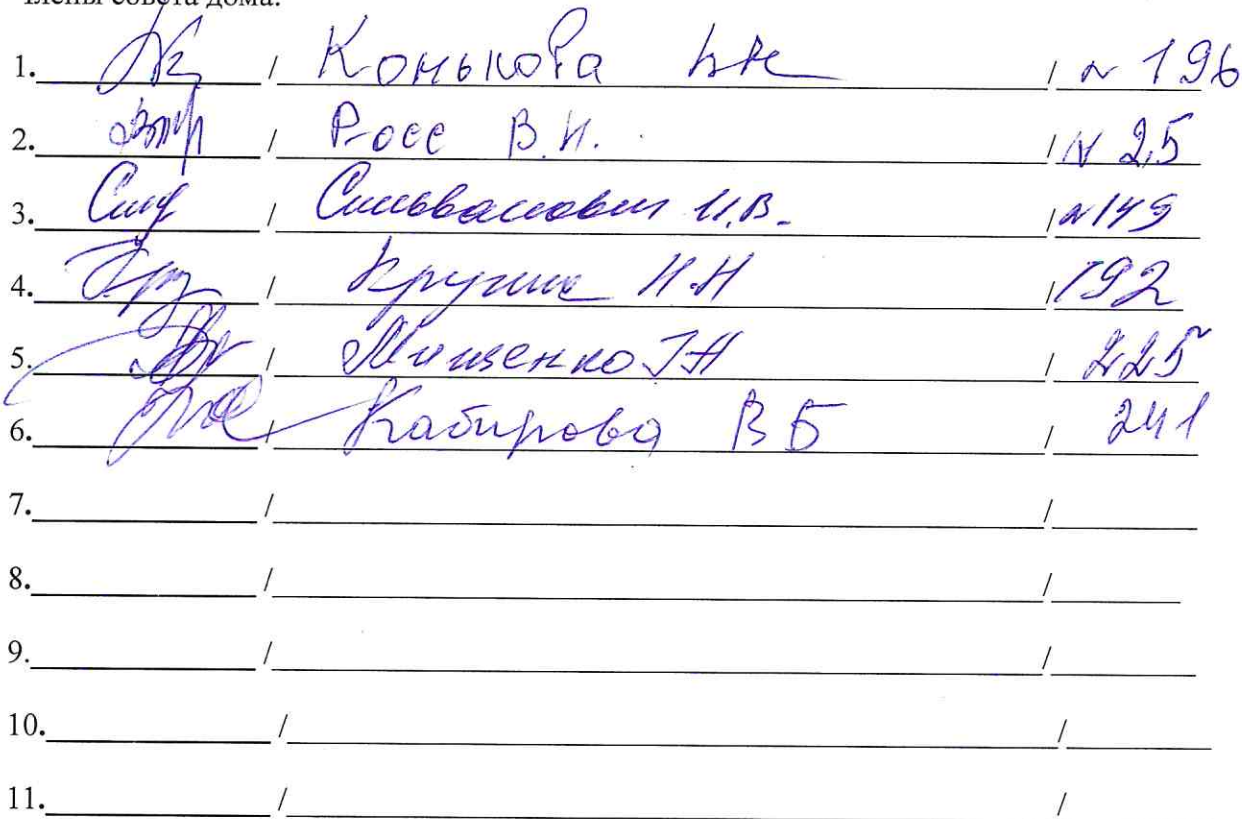 Члены совета дома:
1. / Конькова / № 196
2. / Росс В.И. / № 25
3. / Сильванович И.В. / № 149
4. / Н.Н / 192
5. / Мищенко Т.Н / 225
6. / Кабирова В Б / 241
7. / /
8. / /
9. / /
10. / /
11. / /